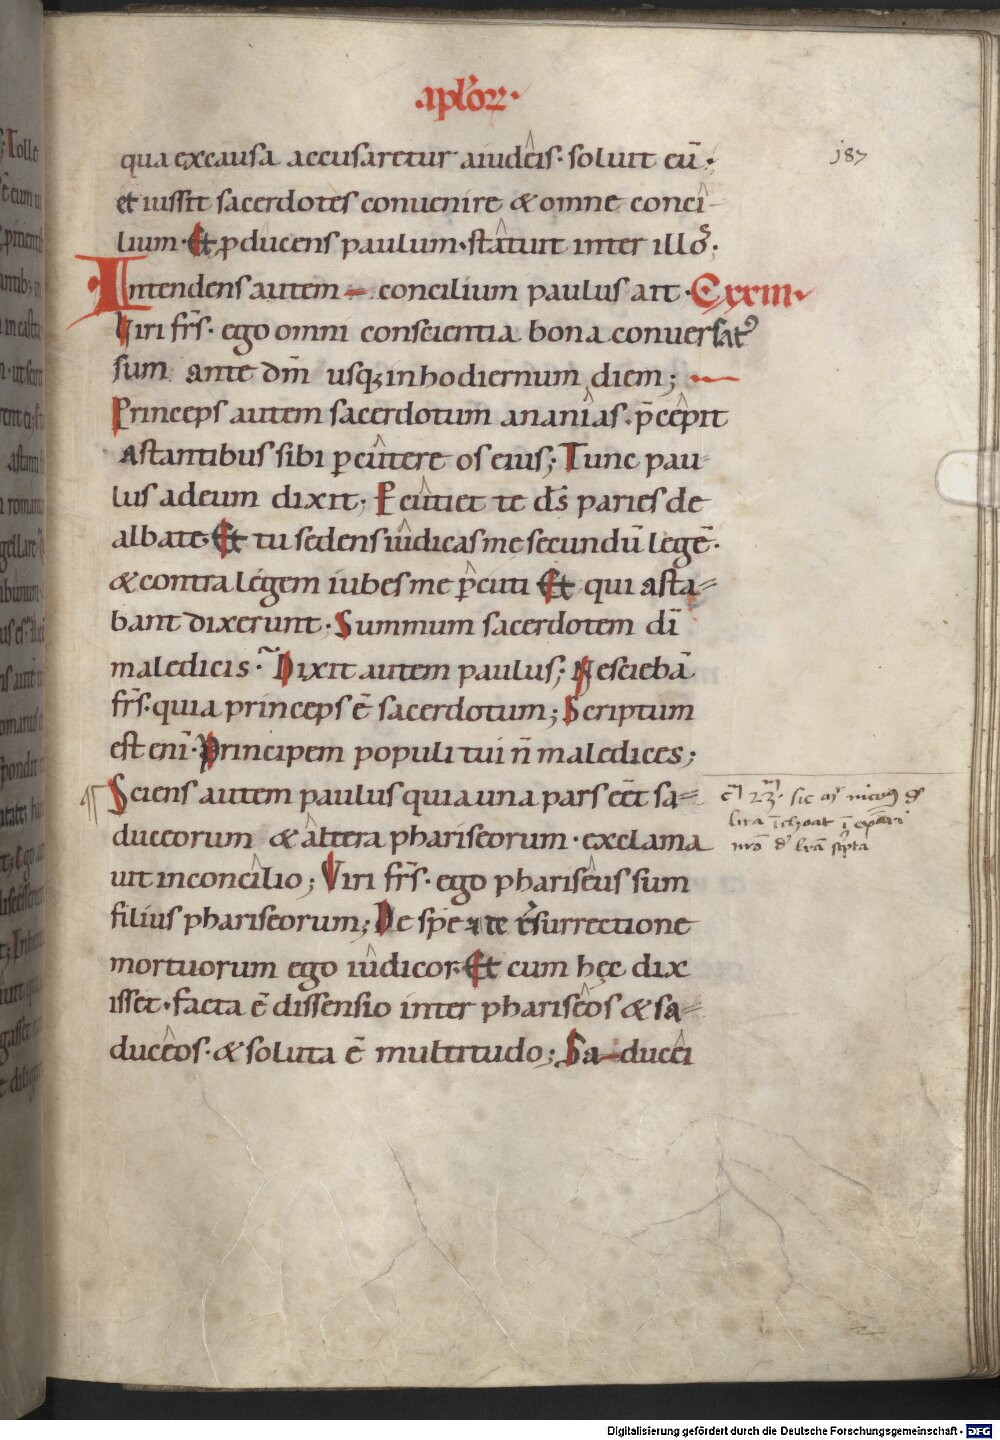 apl'oꝝ
qua excausa accusaretur aiudeis· soluit eū·
187
et iussit sacerdotes conuenire & omne conci
lium· Et pducens paulum· statuit inter illos·
Intendens autem concilium paulus ait· Cxxiii
Viri frs̄· ego omni conscientia bona conuersatꝰ
sum ante dm̄ usq; inhodiernum diem;
Princeps autem sacerdotum ananias· p̄cepit
astantibus sibi percutere os eius; Tunc pau
lus adeum dixit· Pecutiet te ds̄ paries de
albate· Et tu sedens iudicas me secundū legē·
& contra legem iubes me pcuti Et qui asta
bant dixerunt· Summum sacerdotem dī
maledicis· Dixit autem paulus; Nesciebā
frs̄· quia princeps ē sacerdotum; Scriptum
est enī· Principem populi tui n̄ maledices;
Sciens autem paulus quia una pars eēt sa
duceorum & altera phariseorum· exclama
uit inconcilio; Viri frs̄· ego phariseus sum
filius phariseorum; De spe & te rsurrectione
mortuorum ego iudicor· Et cum hęc dix
isset· facta ē dissensio inter phariseos & sa
duceos· & soluta ē multitudo; Sa ducei
Digitalisierung gefördert durch die Deutsche Forschungsgemeinschaft - DFG